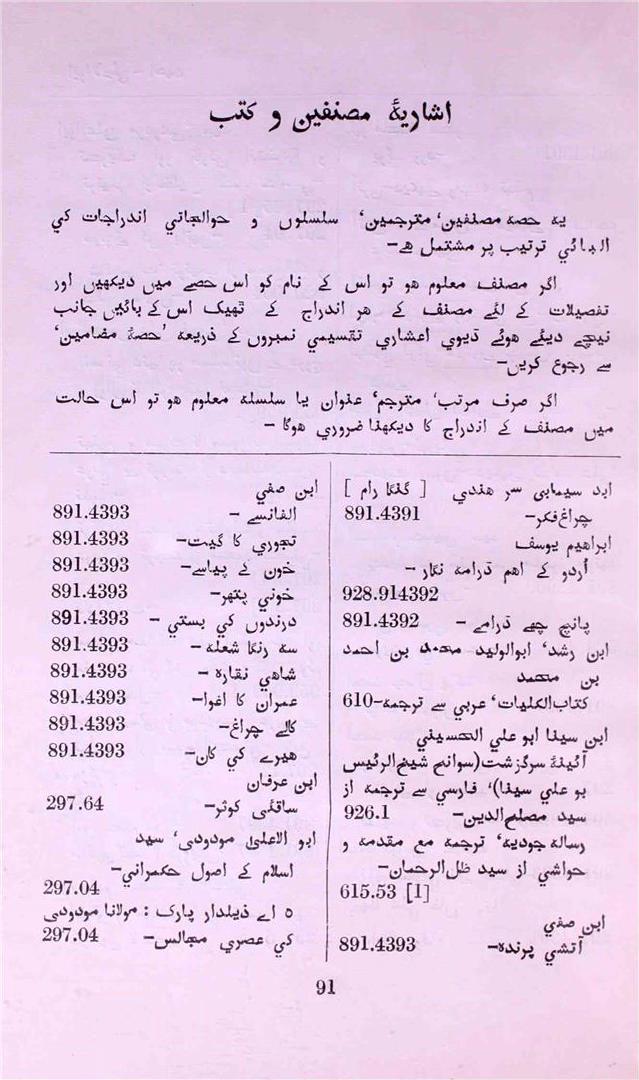 اشاریۂ مصنفین و کتب
یہ حصہ مصنفین، مترجمین، سلسلوں و حوالجاتي اندراجات کي
الفبائي ترتیب پر مشتمل ہے۔
اگر مصنف معلوم ہو تو اس کے نام کو اس حصے میں دیکھیں اور
تفصیلات کے لئے مصنف کے ہر اندراج کے ٹھیک اس کے بائیں جانب
نیچے دیئے ہوئے ڈیوي اعشاري تقسیمي نمبروں کے ذریعہ 'حصۂ مضامین'
سے رجوع کریں۔
اگر صرف مرتب، مترجم، عنوان یا سلسلہ معلوم ہو تو اس حالت
میں مصنف کے اندراج کا دیکھنا ضروري ہوگا۔
ابد سیمابی سر ہندي [گنگا رام]
چراغ فکر۔ 891.4391
ابراہیم یوسف
اُردو کے اہم ڈرامہ نگار۔
928.914392
پانچ چھے ڈرامے۔ 891.4392
ابن رشد، ابوالولید محمد بن احمد
بن محمد
کتاب الکلیات، عربي سے ترجمہ۔ 610
ابن سینا ابو علي الحسیني
آئینۂ سرگزشت (سوانح شیخ الرئیس
بو علي سینا)، فارسي سے ترجمہ از
سید مصلح الدین۔ 926.1
رسالہ جودیہ، ترجمہ مع مقدمہ و
حواشي از سید ظل الرحمان۔
615.53 [1]
ابن صفي
آتشي پرندہ۔ 891.4393
ابن صفي
الفانسے۔ 891.4393
تجوري کا گیت۔ 891.4393
خون کے پیاسے۔ 891.4393
خوني پتھر۔ 891.4393
درندوں کي بستي۔ 891.4393
سہ رنگا شعلہ۔ 891.4393
شاهي نقارہ۔ 891.4393
عمران کا اغوا۔ 891.4393
کالے چراغ۔ 891.4393
ہیرے کي کان۔ 891.4393
ابن عرفان
ساقئی کوثر۔ 297.64
ابو الاعلیٰ مودودی، سید
اسلام کے اصول حکمراني۔
297.04
۵ اے ذیلدار پارک : مولانا مودودی
کي عصري مجالس۔ 297.04
91